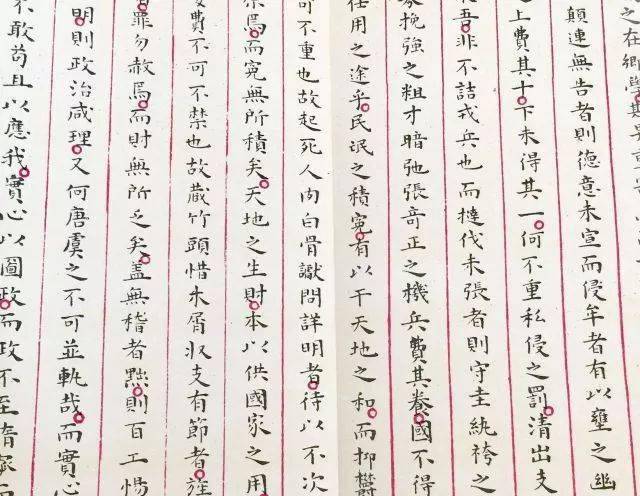 之在鄉學其
顛連無告者則德意未宣而侵牟者有以壅之幽
上費其十下未得其一何不重私侵之罰清出支
吾非不詰戎兵也而撻伐未張者則守圭紈袴之
挽強之粗才暗弛張竒正之機兵費其養國不得
任用之途乎民氓之積寃有以干天地之和而抑欝
可不重也故起死人肉白骨讞問詳明者待以不次
焉而寃無所積矣天地之生財本以供國家之用
費不可不禁也故蔵竹頭惜木屑収支有節者旌
罪勿赦焉而財無所乏矣盖無稽者黜則百工惕
明則政治咸理又何唐虞之不可並軌哉而實心
不敢苟且以應我實心以圖政而政不至